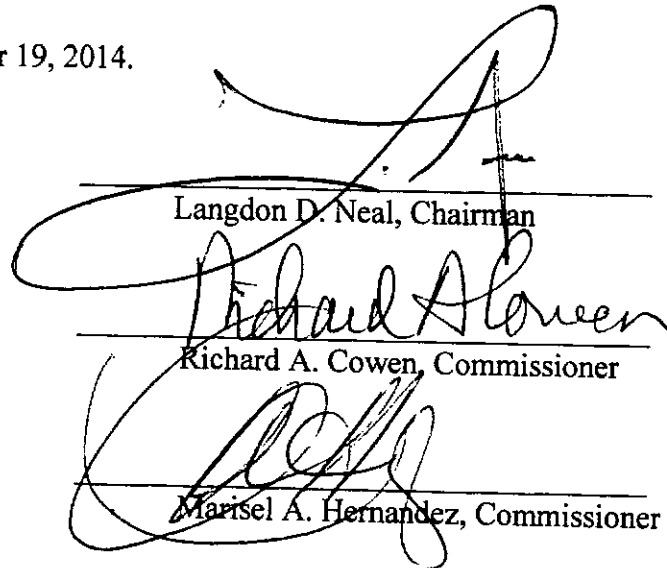 r 19, 2014.
Langdon D. Neal, Chairman
Richard A Cowen
Richard A. Cowen, Commissioner
Marisel A. Hernandez, Commissioner